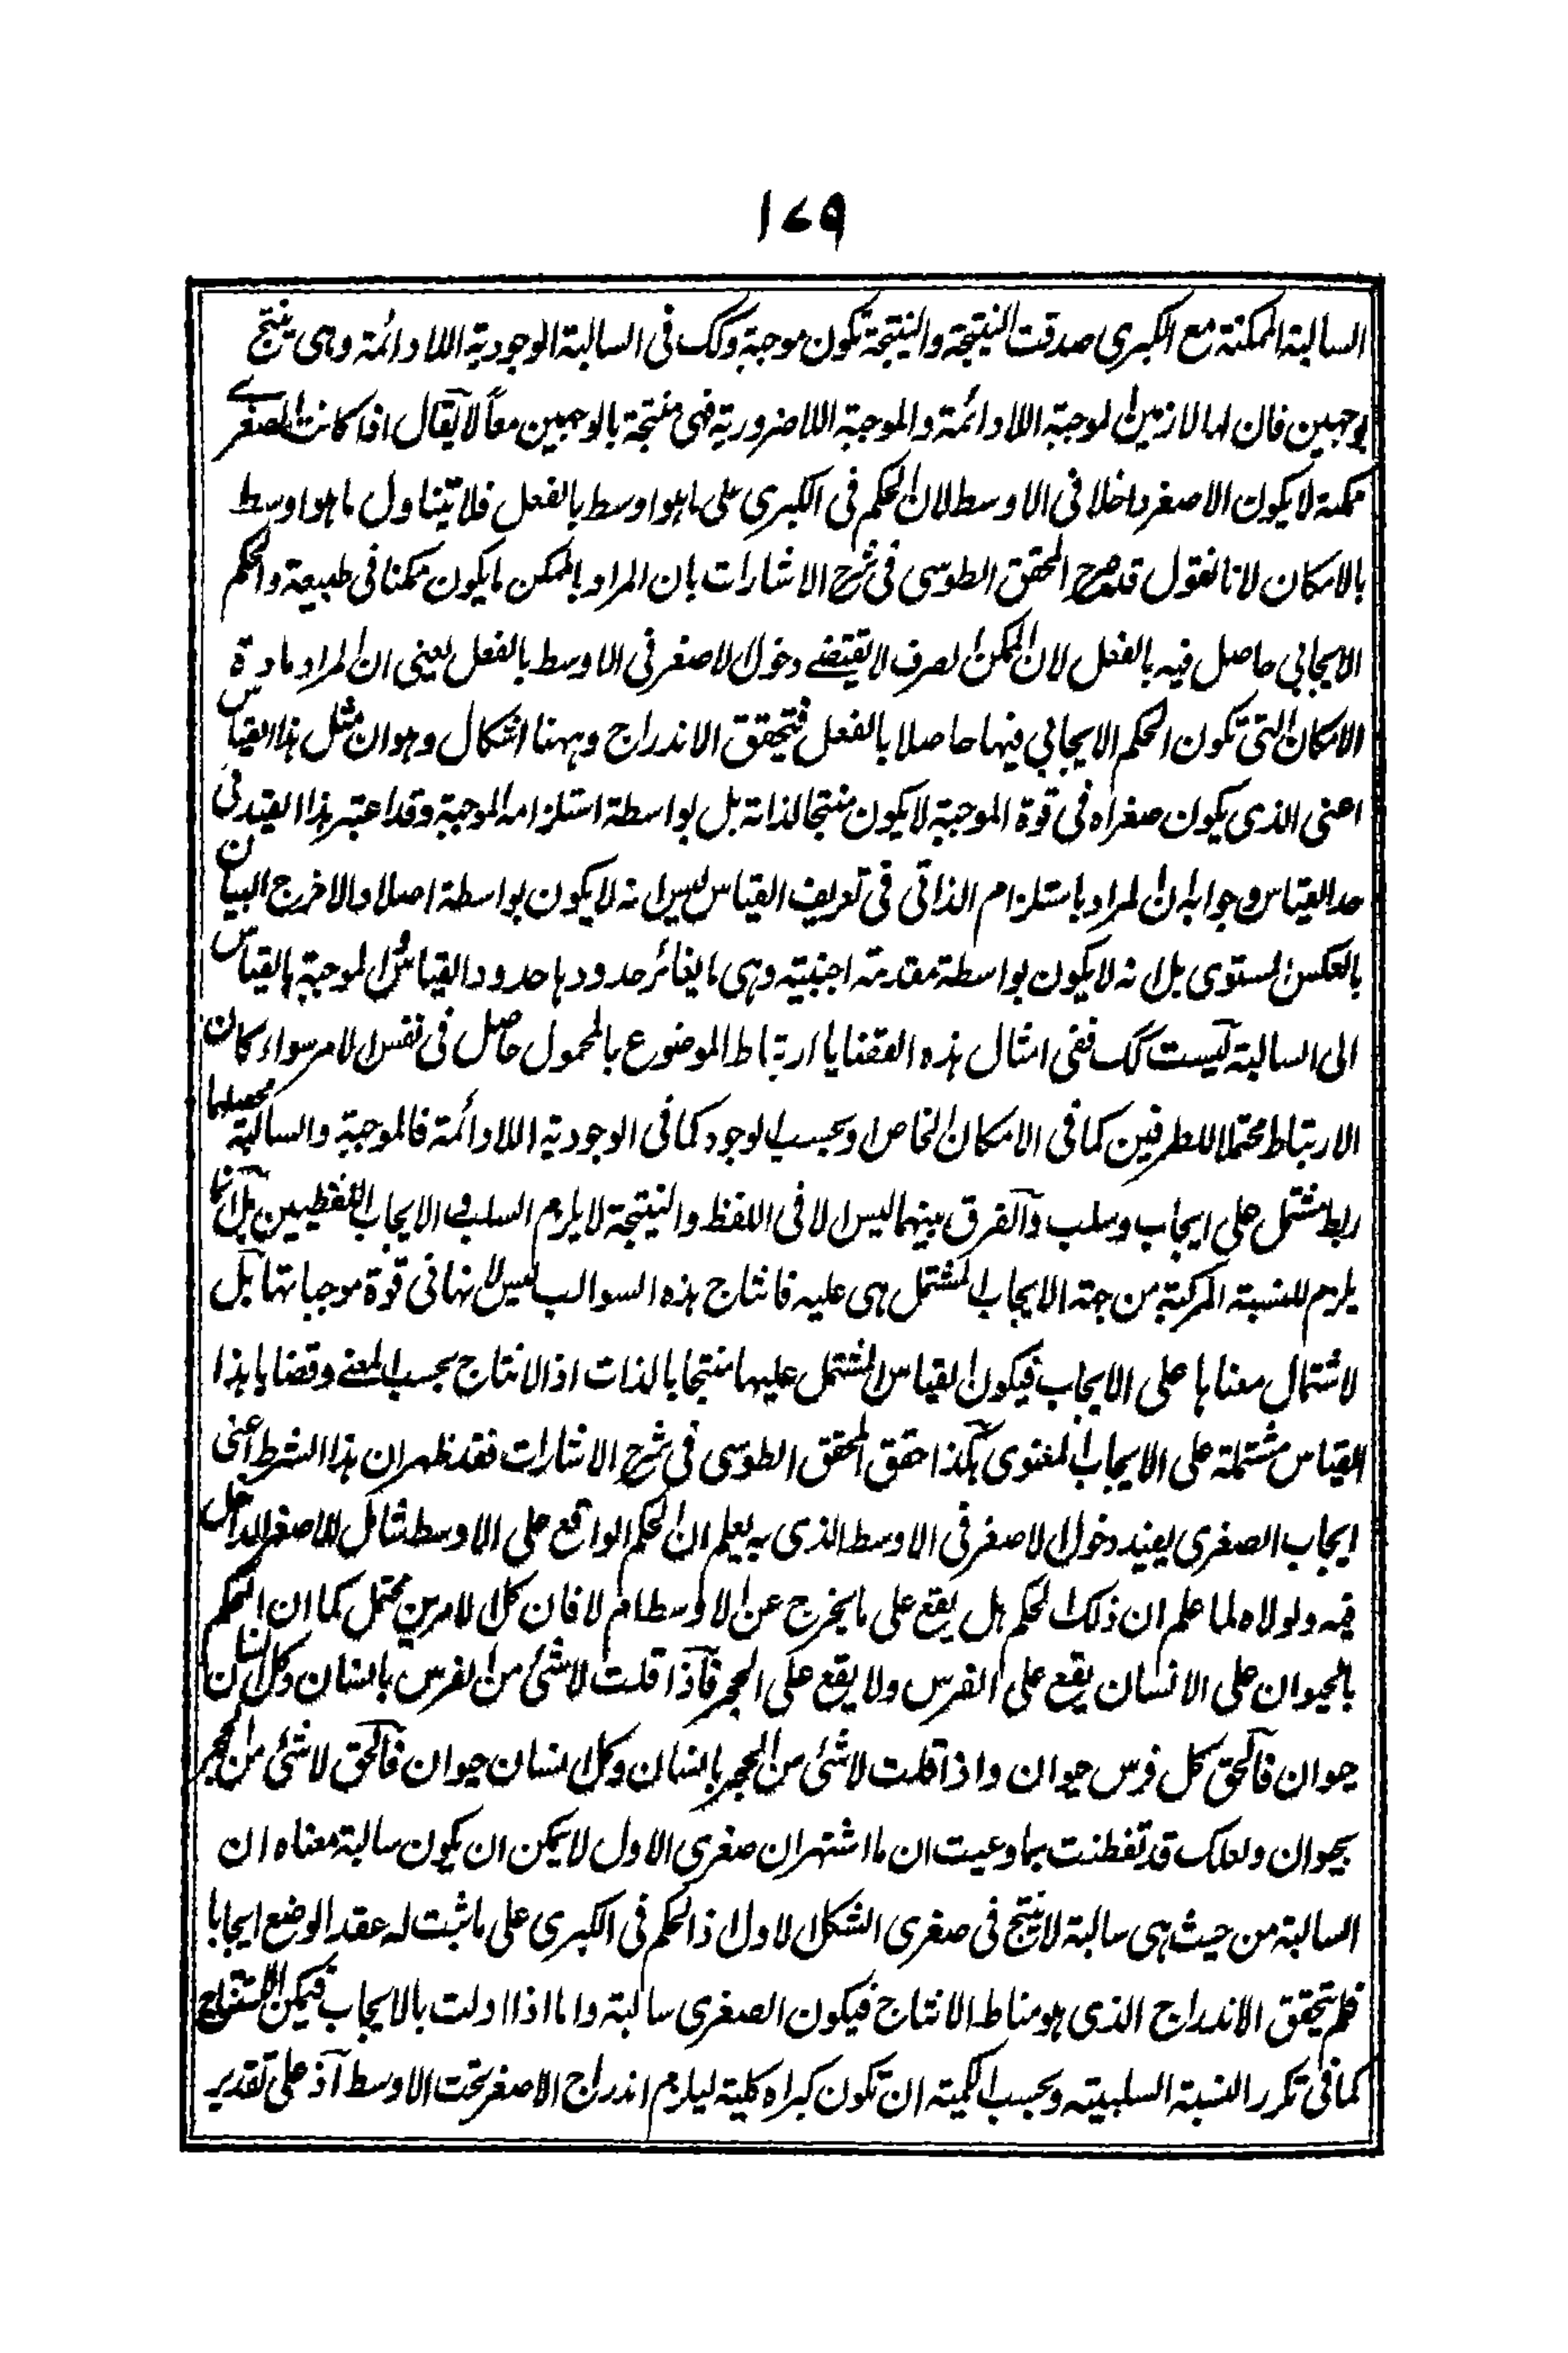 ١٧٩
السالبة الممكنة مع الكبرى صدقت النتيجة والنتيجة تكون موجبة وكك فى السالبة الوجودية اللادائمة وهى ينتج
بوجهين فان لها لازمين الموجبة اللادائمة والموجبة اللاضرورية فهى منتجة بالوجهين معاً لا يقال اذا كانت الصغرے
ممكنة لا يكون الاصغر داخلا فى الاوسط لان الحكم فى الكبرى على ما هو اوسط بالفعل فلا تتناول ما هو اوسط
بالامكان لانا نقول قد صرح المحقق الطوسى فى شرح الاشارات بان المراد بالممكن ما يكون ممكنا فى طبيعة والحكم
الايجابى حاصل فيه بالفعل لان الممكن الصرف لا يقتضے دخول الاصغر فى الاوسط بالفعل يعنى ان المراد مادة
الامكان التى تكون الحكم الايجابى فيها حاصلا بالفعل فتحقق الاندراج وههنا اشكال وهو ان مثل هذا القياس
اعنى الذى يكون صغراه فى قوة الموجبة لا يكون منتجا لذاته بل بواسطة استلزامه الموجبة وقد اعتبر هذا القيد فى
حد القياس وجوابه ان المراد باستلزام الذاتى فى تعريف القياس ليس انه لا يكون بواسطة اصلا والا خرج البيان
بالعكس المستوى بل انه لا يكون بواسطة مقدمته اجنبيته وهى ما يغائر حدودها حدود القياس والموجبة بالقياس
الى السالبة ليست كك ففى امثال هذه القضايا ارتباط الموضوع بالمحمول حاصل فى نفس الامر سواء كان
الارتباط محتملا للطرفين كما فى الامكان الخاص او بحسب الوجود كما فى الوجودية اللادائمة فالموجبة والسالبة محصلها
ربط مشتمل على ايجاب وسلب والفرق بينهما ليس الا فى اللفظ والنتيجة لا يلزم السلب والايجاب اللفظيين بل انما
يلزم للنسبة المركبة من جهة الايجاب المشتمل هى عليه فانتاج هذه السوالب ليس لانها فى قوة موجباتها بل
لاشتمال معناها على الايجاب فيكون القياس المشتمل عليها منتجا بالذات اذ الانتاج بحسب المعنے وقضايا هذا
القياس مشتملة على الايجاب المعنوى هكذا حقق المحقق الطوسى فى شرح الاشارات فقد ظهر ان هذا الشرط اعنى
ايجاب الصغرى يفيد دخول الاصغر فى الاوسط الذى به يعلم ان الحكم الواقع على الاوسط شامل للاصغر الداخل
فيه ولولاه لما علم ان ذلك الحكم هل يقع على ما يخرج عن الاوسط ام لا فان كلا الامرين محتمل كما ان الحكم
بالحيوان على الانسان يقع على الفرس ولا يقع على الحجر فاذا قلت لا شئ من الفرس بانسان وكل انسان
حيوان فالحق كل فرس حيوان واذا قلت لا شئ من الحجر بانسان وكل انسان حيوان فالحق لا شئ من الحجر
بحيوان ولعلك قد تفطنت بما وعيت ان ما اشتهر ان صغرى الاول لا يمكن ان يكون سالبة معناه ان
السالبة من حيث هى سالبة لا ينتج فى صغرى الشكل الاول اذ الحكم فى الكبرى على ما ثبت له عقد الوضع ايجابا
فلم يتحقق الاندراج الذى هو مناط الانتاج فيكون الصغرى سالبة واما اذا اولت بالايجاب فيمكن الاستنتاج
كما فى تكرر النسبة السلبيته وبحسب الكميته ان تكون كبراه كلية ليلزم اندراج الاصغر تحت الاوسط اذ على تقدير